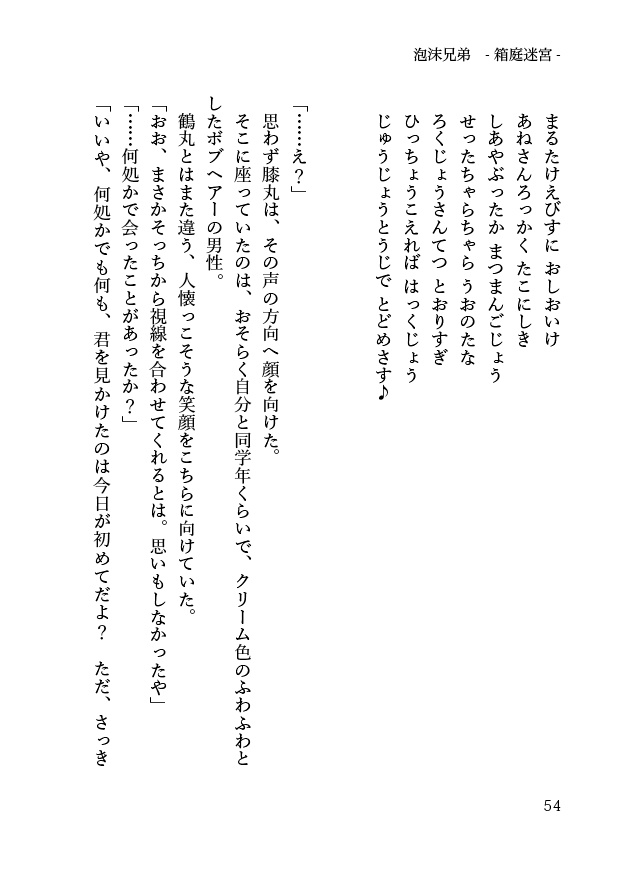 泡沫兄弟　- 箱庭迷宮 -
まるたけえびすに おしおいけ
あねさんろっかく たこにしき
しあやぶったか まつまんごじょう
せったちゃらちゃら うおのたな
ろくじょうさんてつ とおりすぎ
ひっちょうこえれば はっくじょう
じゅうじょうとうじで とどめさす♪
「……え？」
思わず膝丸は、その声の方向へ顔を向けた。
そこに座っていたのは、おそらく自分と同学年くらいで、クリーム色のふわふわと
したボブヘアーの男性。
鶴丸とはまた違う、人懐っこそうな笑顔をこちらに向けていた。
「おお、まさかそっちから視線を合わせてくれるとは。思いもしなかったや」
「……何処かで会ったことがあったか？」
「いいや、何処かでも何も、君を見かけたのは今日が初めてだよ？　ただ、さっき
54